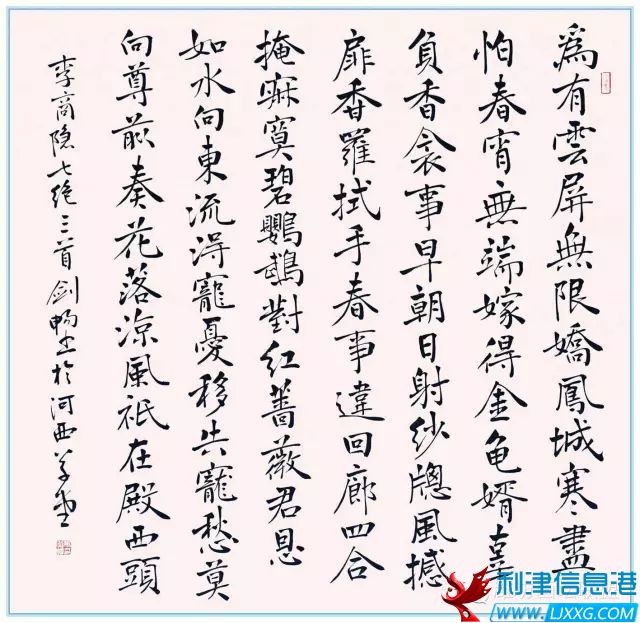 爲有雲屏無限嬌鳳城寒盡
怕春宵無端嫁得金龟婿辜
負香衾事早朝日射紗牕風撼
扉香羅拭手春事違回廊四合
掩寂寞碧鸚鵡對紅薔薇君恩
如水向東流得寵憂移失寵愁莫
向尊前奏花落涼風祇在殿西頭
李商隐七绝三首剑畅书於河西草堂
利津信息港
WWW.LJXXG.COM